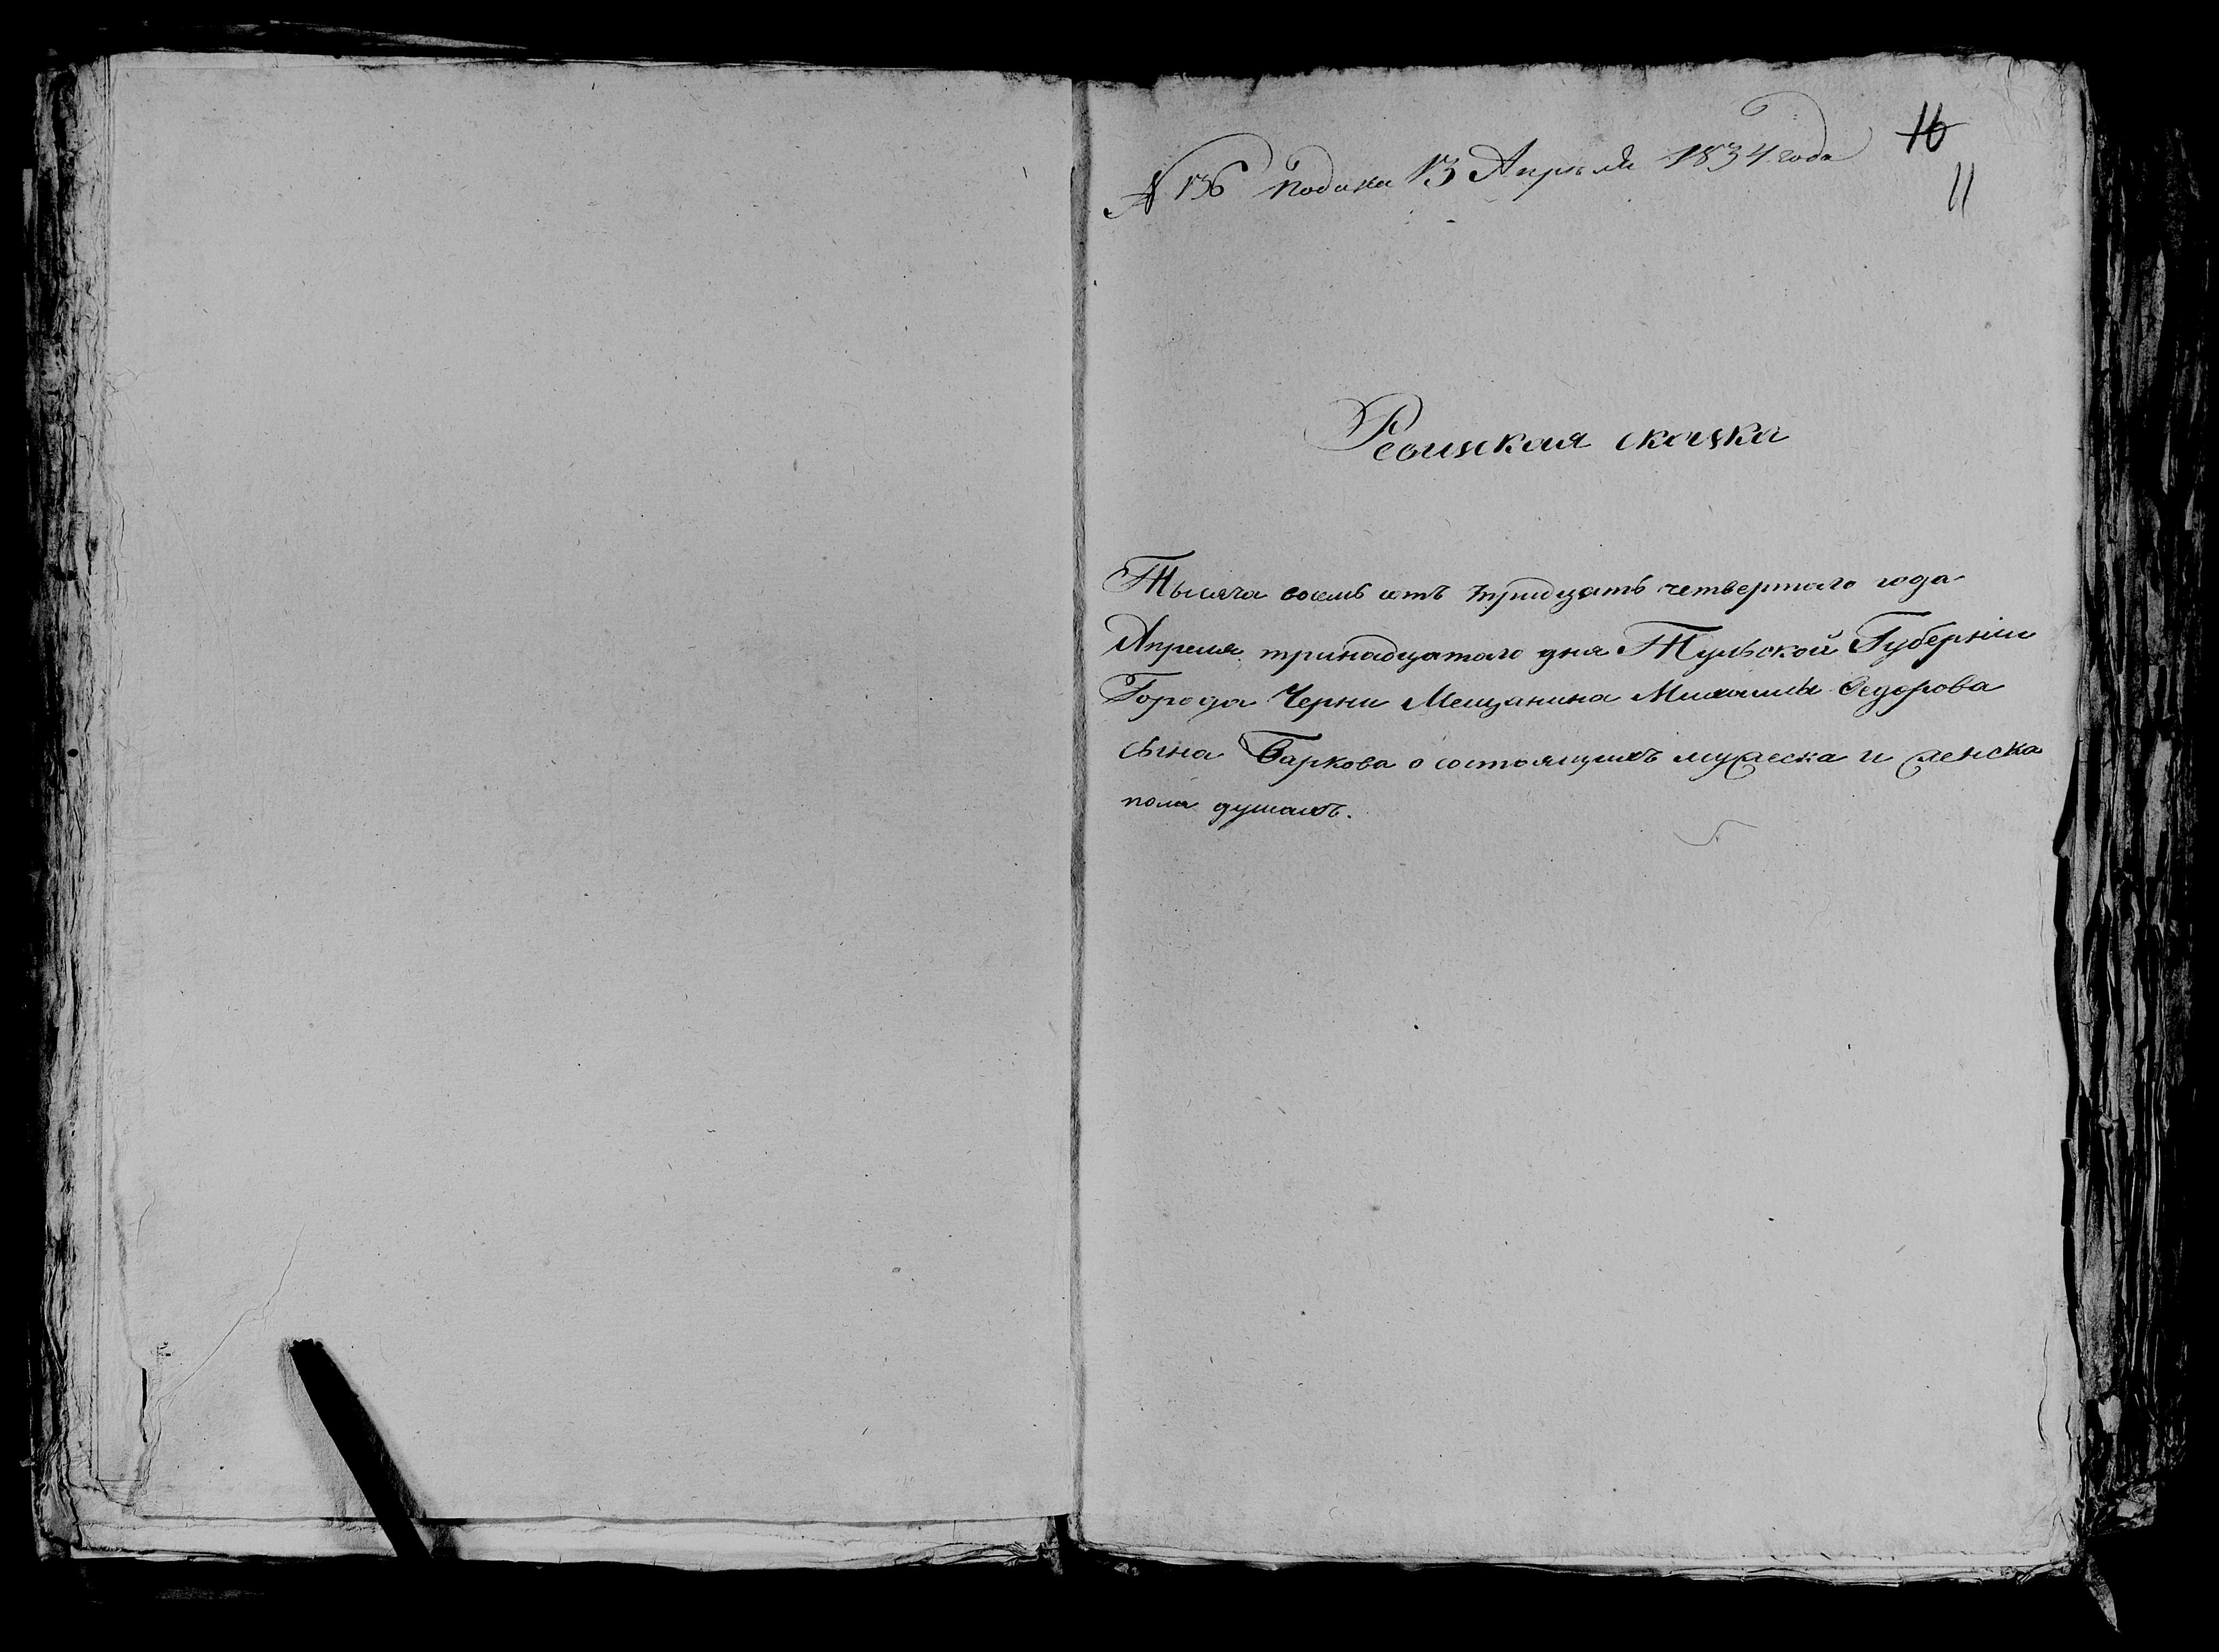 10
11
№ 136 Подана 13 Апреля 1834 года
Ревизская сказка
Тысяча восемь сотъ тридцать четвертаго года
Апреля тринадцатаго дня Тульской Губерніи
Города Черни Мещанина Михаилы Федорова
сына Баркова о состоящихъ мужеска и женска
пола душахъ.